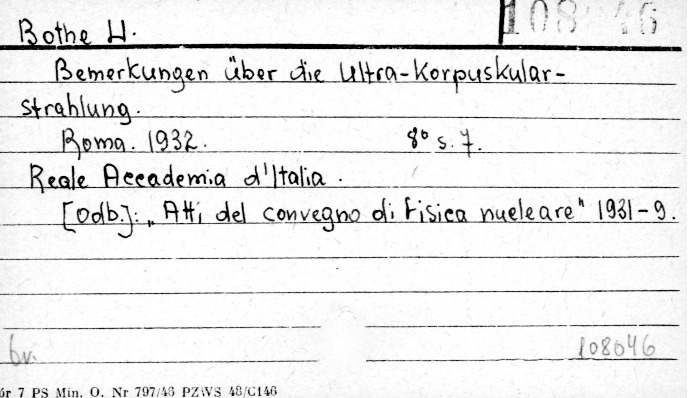 108046
Bothe W.
Bemerkungen über die Ultra-Korpuskular-
strahlung.
Roma. 1932. 8° s. 7.
Reale Accademia d'Italia.
[Odb.]: „Atti del convegno di fisica nucleare" 1931-9.
br. 108046
ór 7 PS Min. O. Nr 797/46 PZWS 48/C146